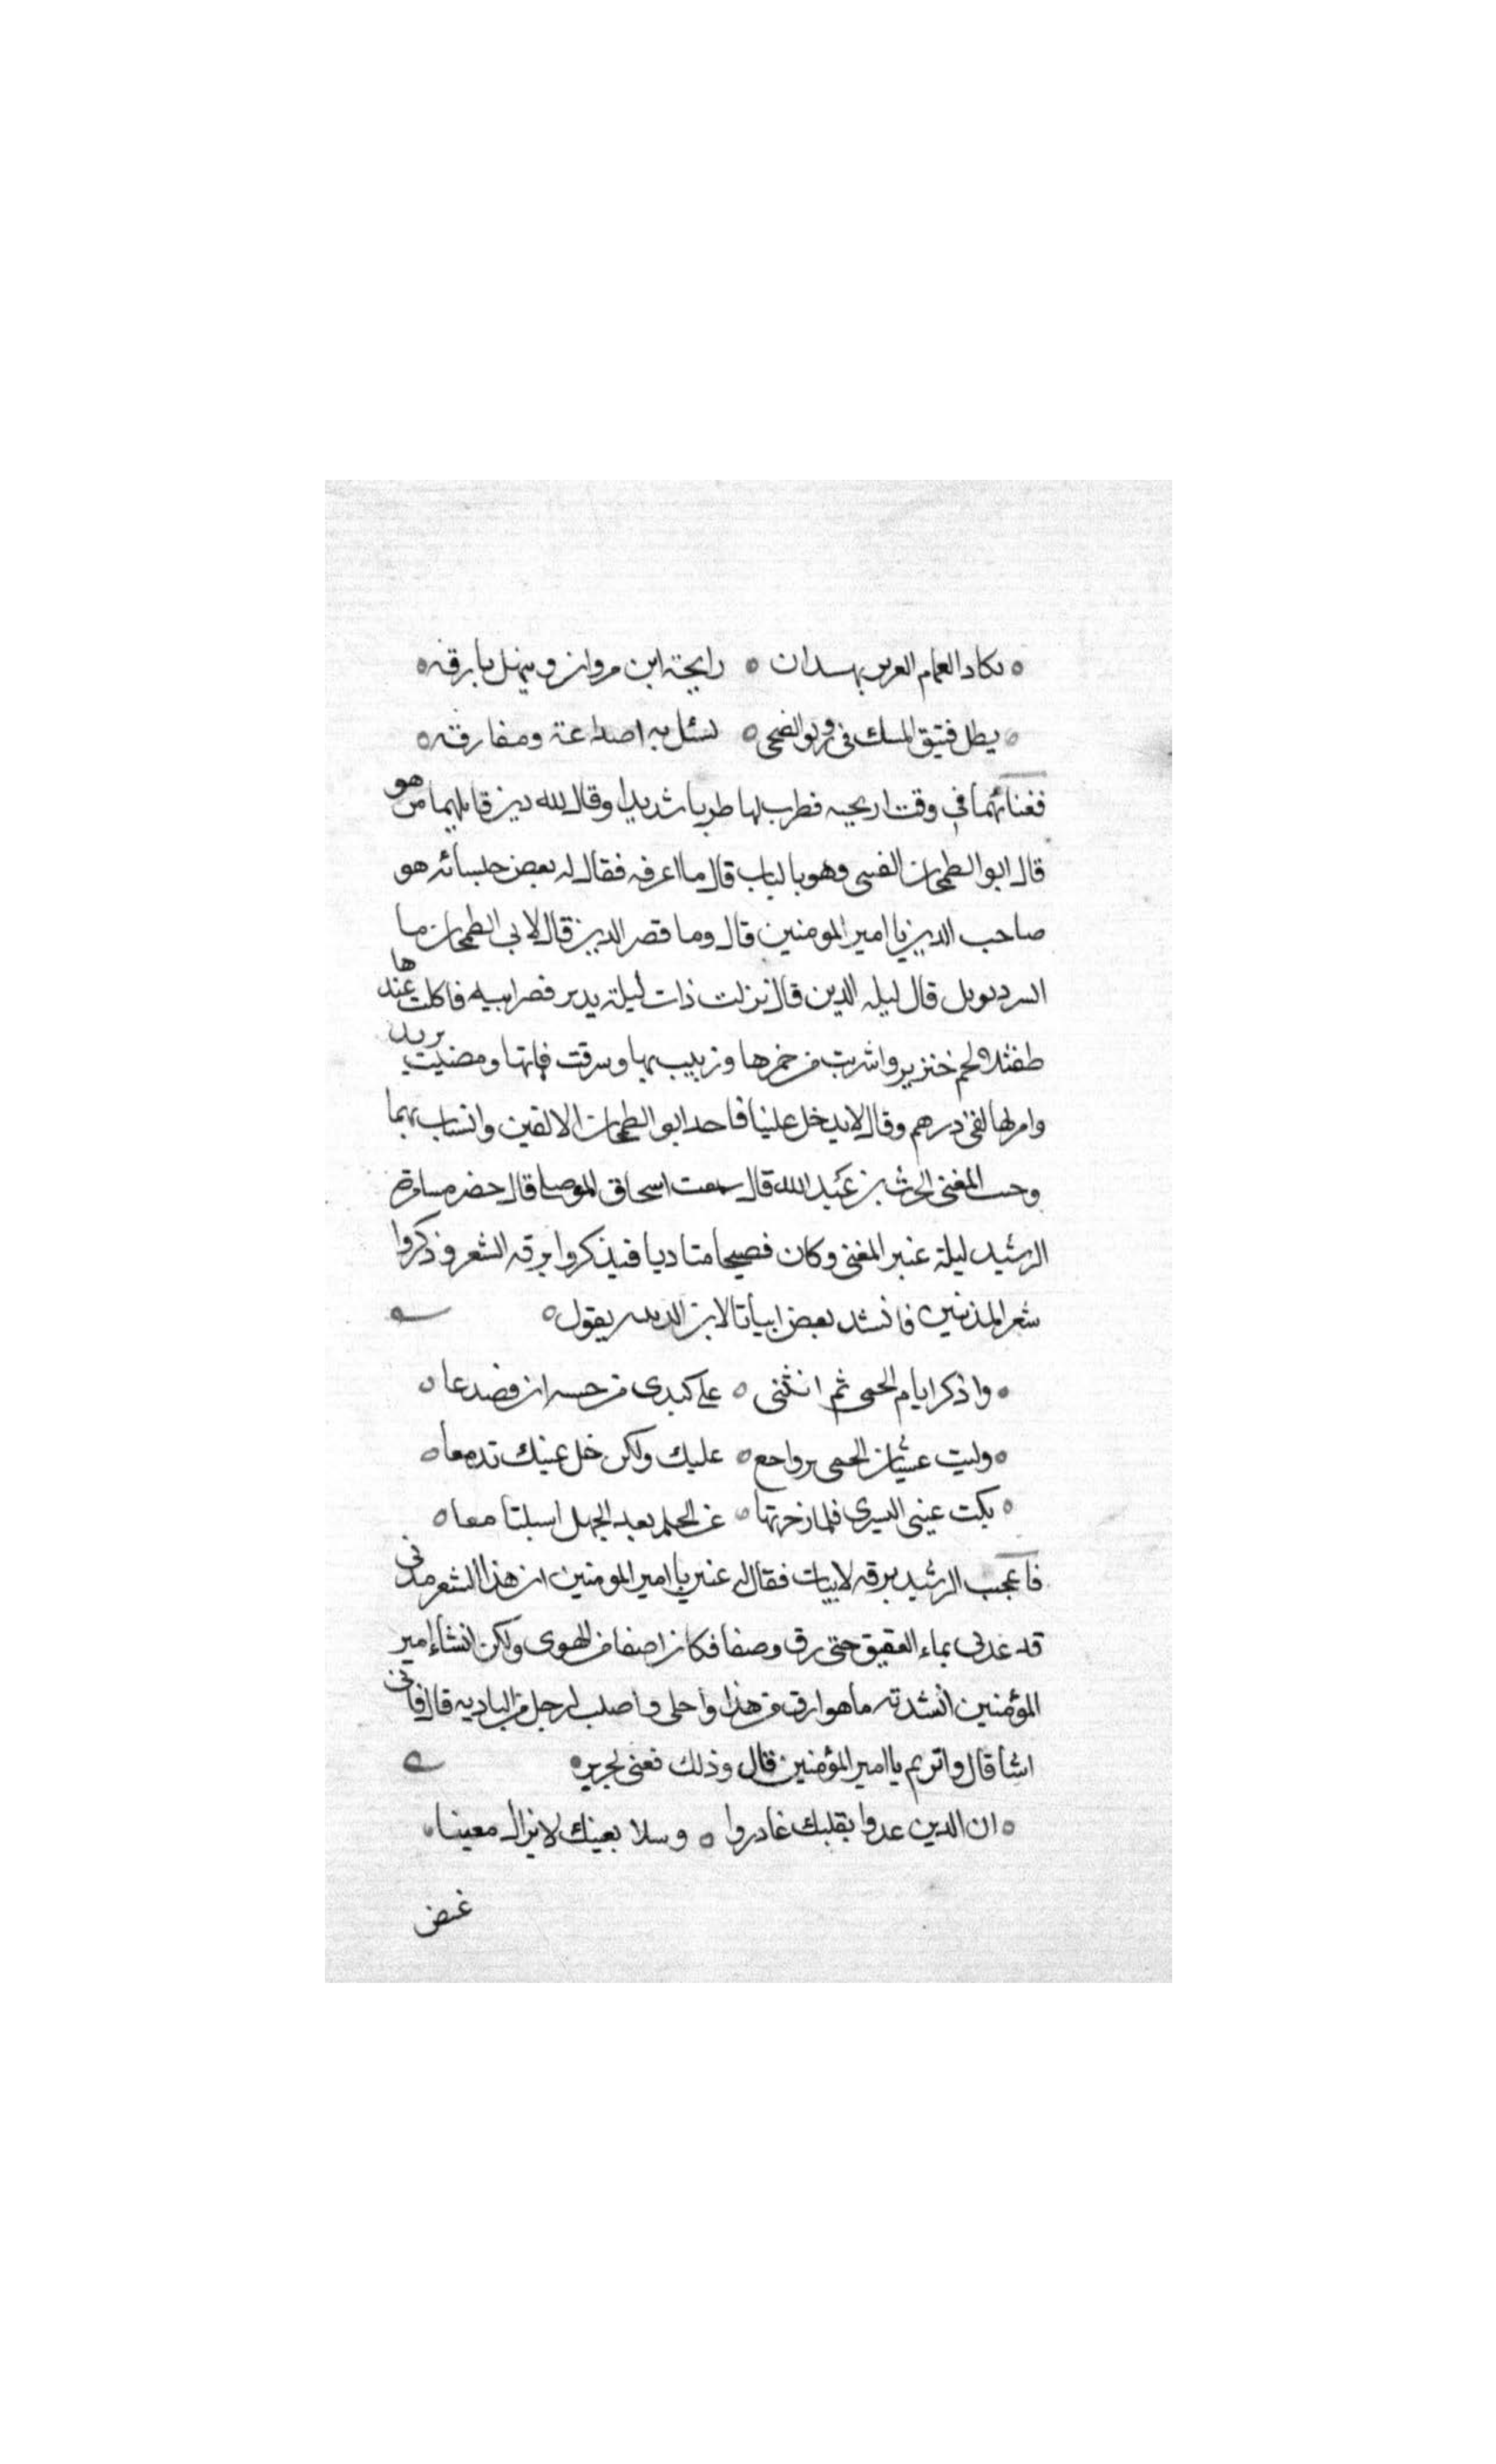 يكاد الغمام الغر ان راى وجه ابن مروان وينهل بارقه
يظل فتيق المسك فى رونق الضحى تسيل به اصداغه ومفارقه
فغنائهما فى وقت اريحيه فطرب لها طربا شديدا وقال لله در قايلهما من هو
قال ابو الطمحان القينى وهو بالباب قال ما اعرفه فقال له بعض جلسائه هو
صاحب الدير يا امير المومنين قال وما قصر الدير قال لابى الطمحان ما
قال ليله الدير قال نزلت ذات ليلة بدير فاكلت عندها
لحم خنزير واشربت من خمرها وسرقت ومضيت
وامر لها لفى درهم وقال لا يدخل علينا فاخد ابو الطمحان الالفين وانساب بهما
المغنى الحرث بن عبد الله قال سمعت اسحاق الموصلى قال حضر مسامرة
الرشيد ليلة عنبر المغنى وكان فصيحا متاديا فيذكروا برقه الشعر وذكروا
شعر المدنيين فانشد بعض ابياتا لابن يقول
واذكر ايام الحمى ثم انثنى على كبدى من ان فصدعا
وليت عشيان الحمى برواجع عليك ولكن خل عينك تدمعا
بكت عينى اليسرى فلما زجرتها عن الحلم بعد الجهل اسبلتا معا
فاعجب الرشيد برقه لابيات فقال له عنبر يا امير المومنين ان هذا الشعر مدنى
قد غدى بماء العقيق حتى رق وصفا فكان اصفا من الهوى ولكن انشاء امير
المؤمنين انشدته ما هو ارق من هذا واحلى واصلب لرجل من الباديه قال فانى
اشا قال واترنم يا امير المؤمنين قال وذلك فغنى لجرير
ان الدين غدوا بقلبك غادروا وسلا بعينك لا يزال معينا
غيض